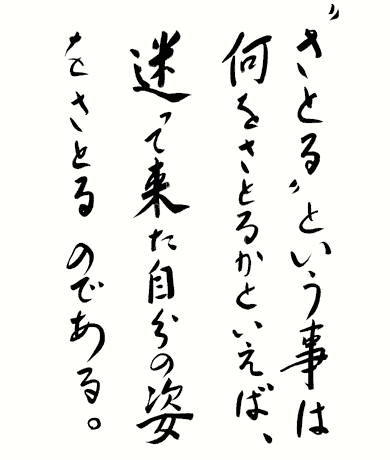 〝さとる〟という事は
何をさとるかといえば、
迷って来た自分の姿
をさとるのである。